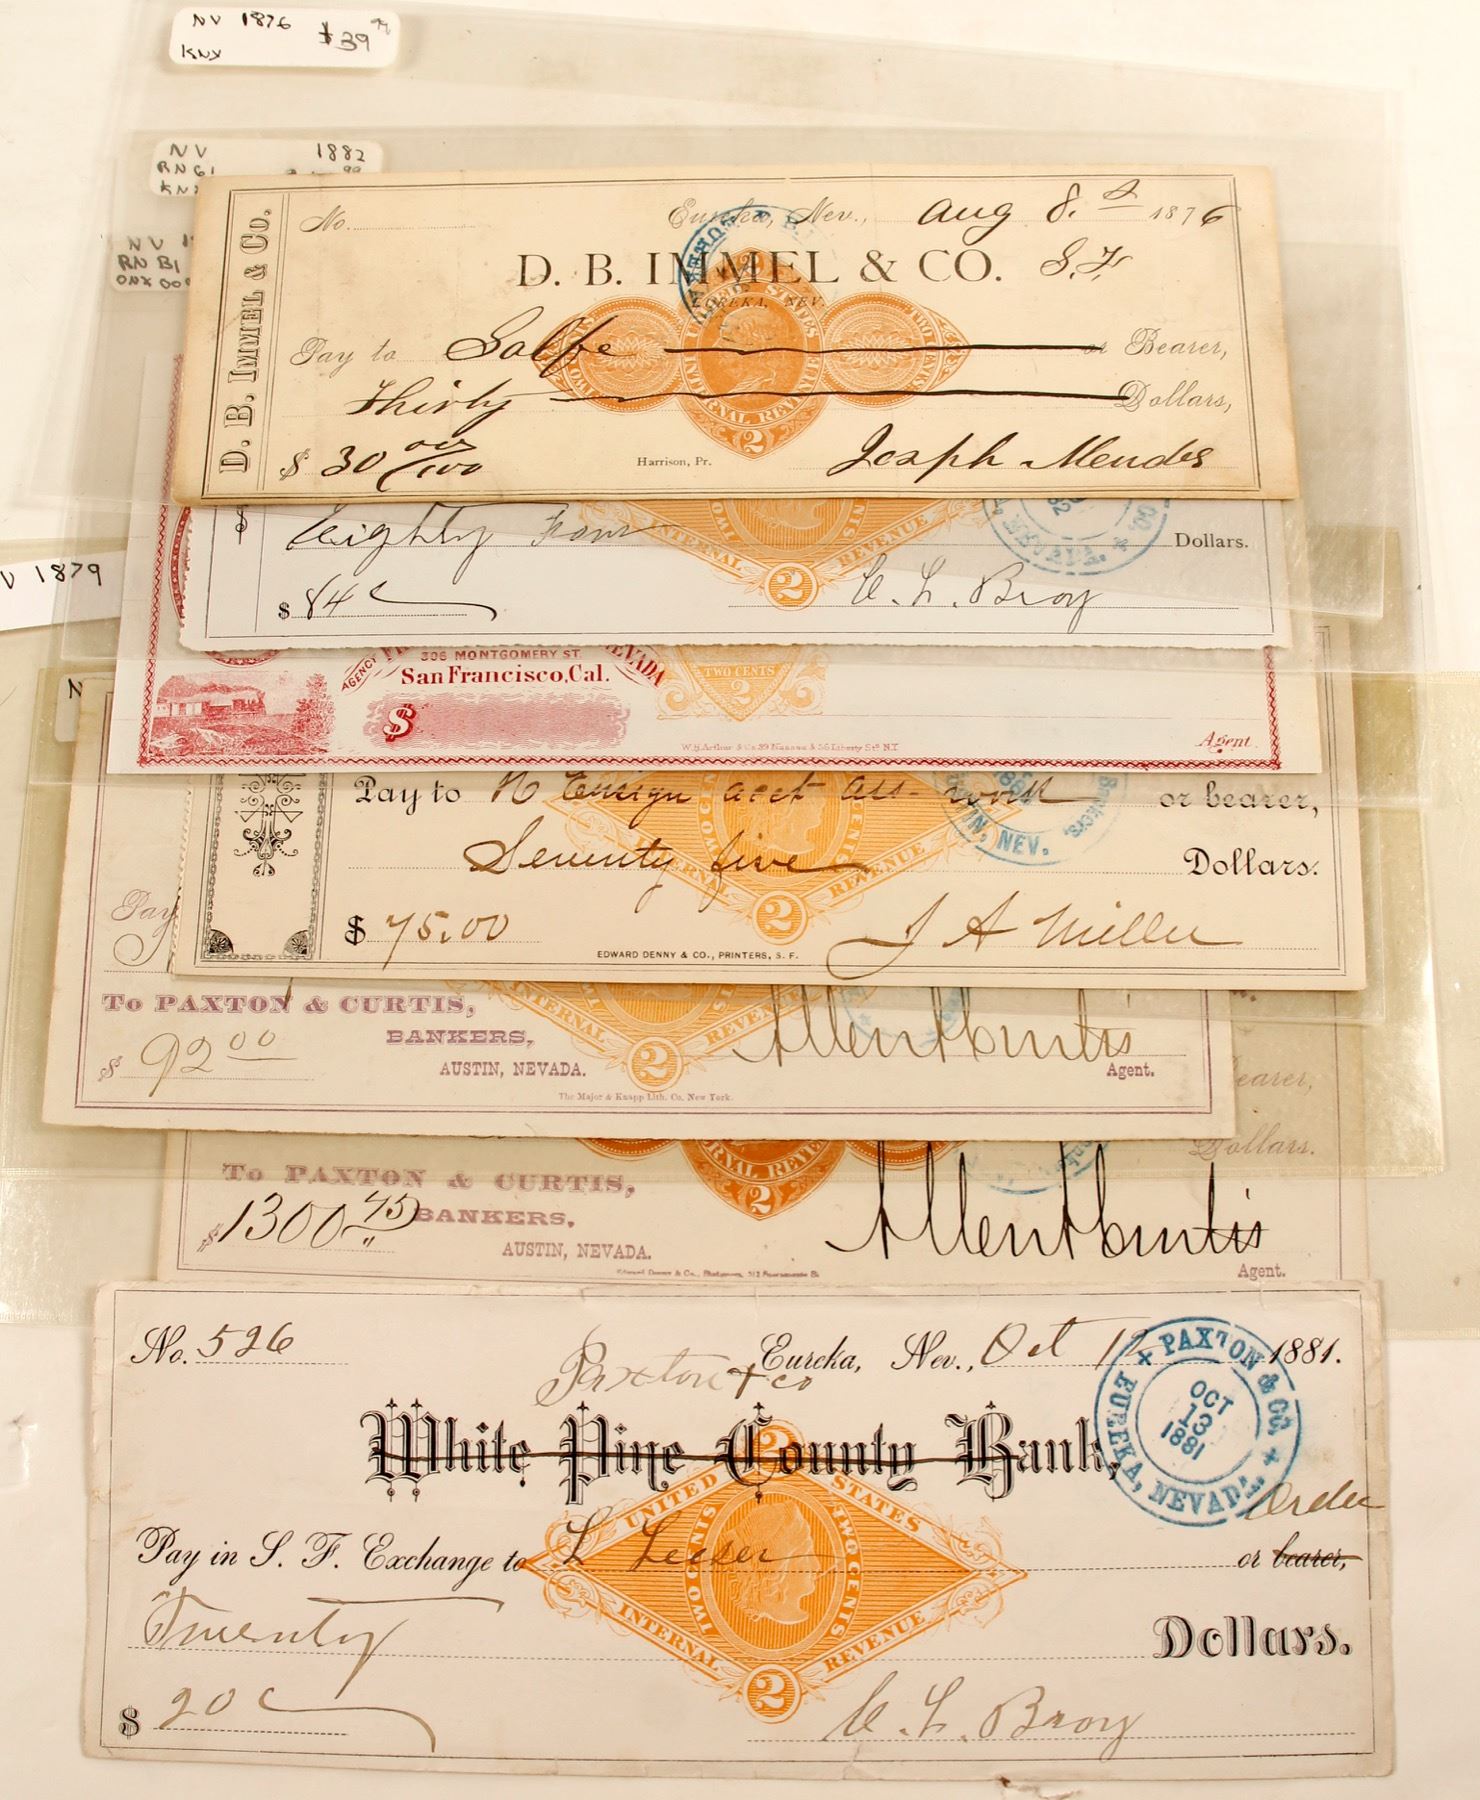 NV 1876 $39 99
KNX
NV 1882
RN G1
99
NV 1
RN B1
V 1879
N
D. B. IMMEL & Co.
No. Eureka, Nev., Aug 8. 1876
D. B. IMMEL & CO. S.F.
EUREKA, NEV.
Pay to Self or Bearer,
Thirty Dollars,
$ 30 00/100 Harrison, Pr. Joseph Mendes
UNITED STATES
INTERNAL REVENUE
2
$ Eighty Four Dollars.
TWO CENTS
INTERNAL REVENUE
2
CO.
NEVADA
$ 84 C. L. Broy
AGENCY NEVADA
306 MONTGOMERY ST.
San Francisco, Cal.
TWO CENTS
2
$
W.H. Arthur & Co. 39 Nassau & 56 Liberty Sts N.Y.
Agent
Pay to N Ensign acct or bearer,
Seventy five Dollars.
REVENUE
2
Bankers,
NEV.
$ 75.00 J A Miller
EDWARD DENNY & CO., PRINTERS, S. F.
Pay
To PAXTON & CURTIS,
BANKERS,
AUSTIN, NEVADA.
$ 92 00
INTERNAL REVENUE
2
Allen A Curtis
Agent.
The Major & Knapp Lith. Co. New York.
earer,
Dollars.
To PAXTON & CURTIS,
BANKERS,
AUSTIN, NEVADA.
$ 1300 45
2
Allen A Curtis
Agent.
No. 526 Eureka, Nev., Oct 12 1881.
Paxton & co
White Pine County Bank,
PAXTON & CO.
OCT
13
1881
EUREKA, NEVADA
Order
Pay in S. F. Exchange to L Leeser or bearer,
Twenty Dollars.
UNITED STATES
TWO CENTS TWO CENTS
INTERNAL REVENUE
2
$ 20 C. L. Broy